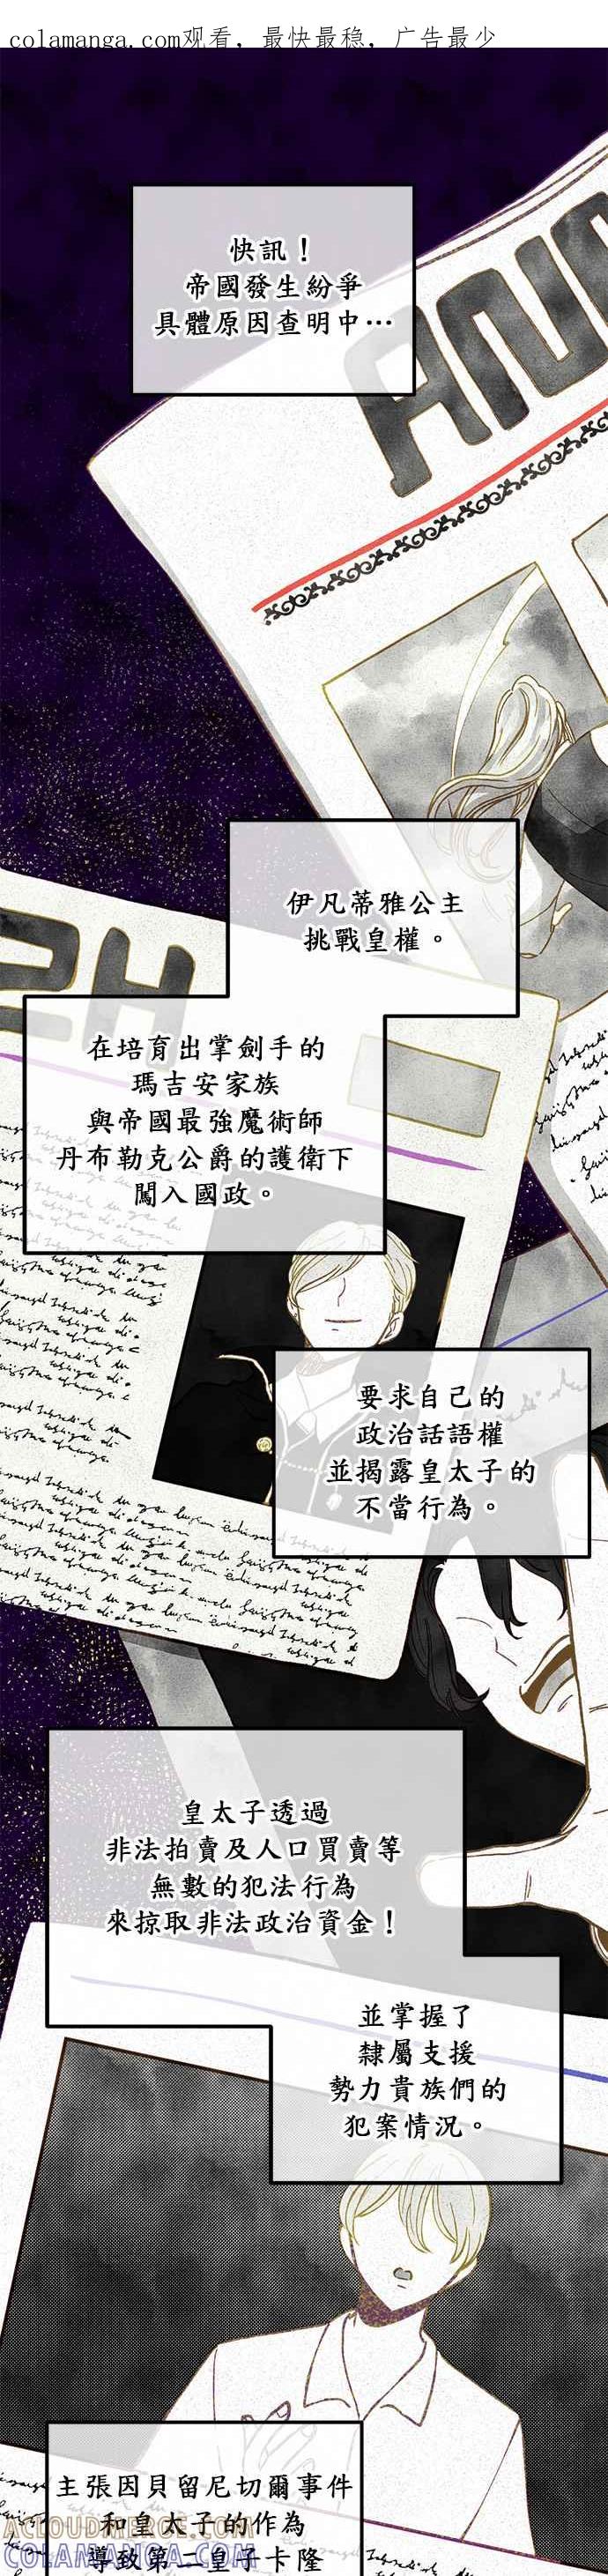 colamanga.com观看，最快最稳，广告最少
快訊！
帝國發生紛爭
具體原因查明中…
伊凡蒂雅公主
挑戰皇權。
在培育出掌劍手的
瑪吉安家族
與帝國最強魔術師
丹布勒克公爵的護衛下
闖入國政。
要求自己的
政治話語權
並揭露皇太子的
不當行為。
皇太子透過
非法拍賣及人口買賣等
無數的犯法行為
來掠取非法政治資金！
並掌握了
隸屬支援
勢力貴族們的
犯案情況。
主張因貝留尼切爾事件
和皇太子的作為
導致第二皇子卡隆
ACLOUDMERGE.COM
COLAMANGA.COM